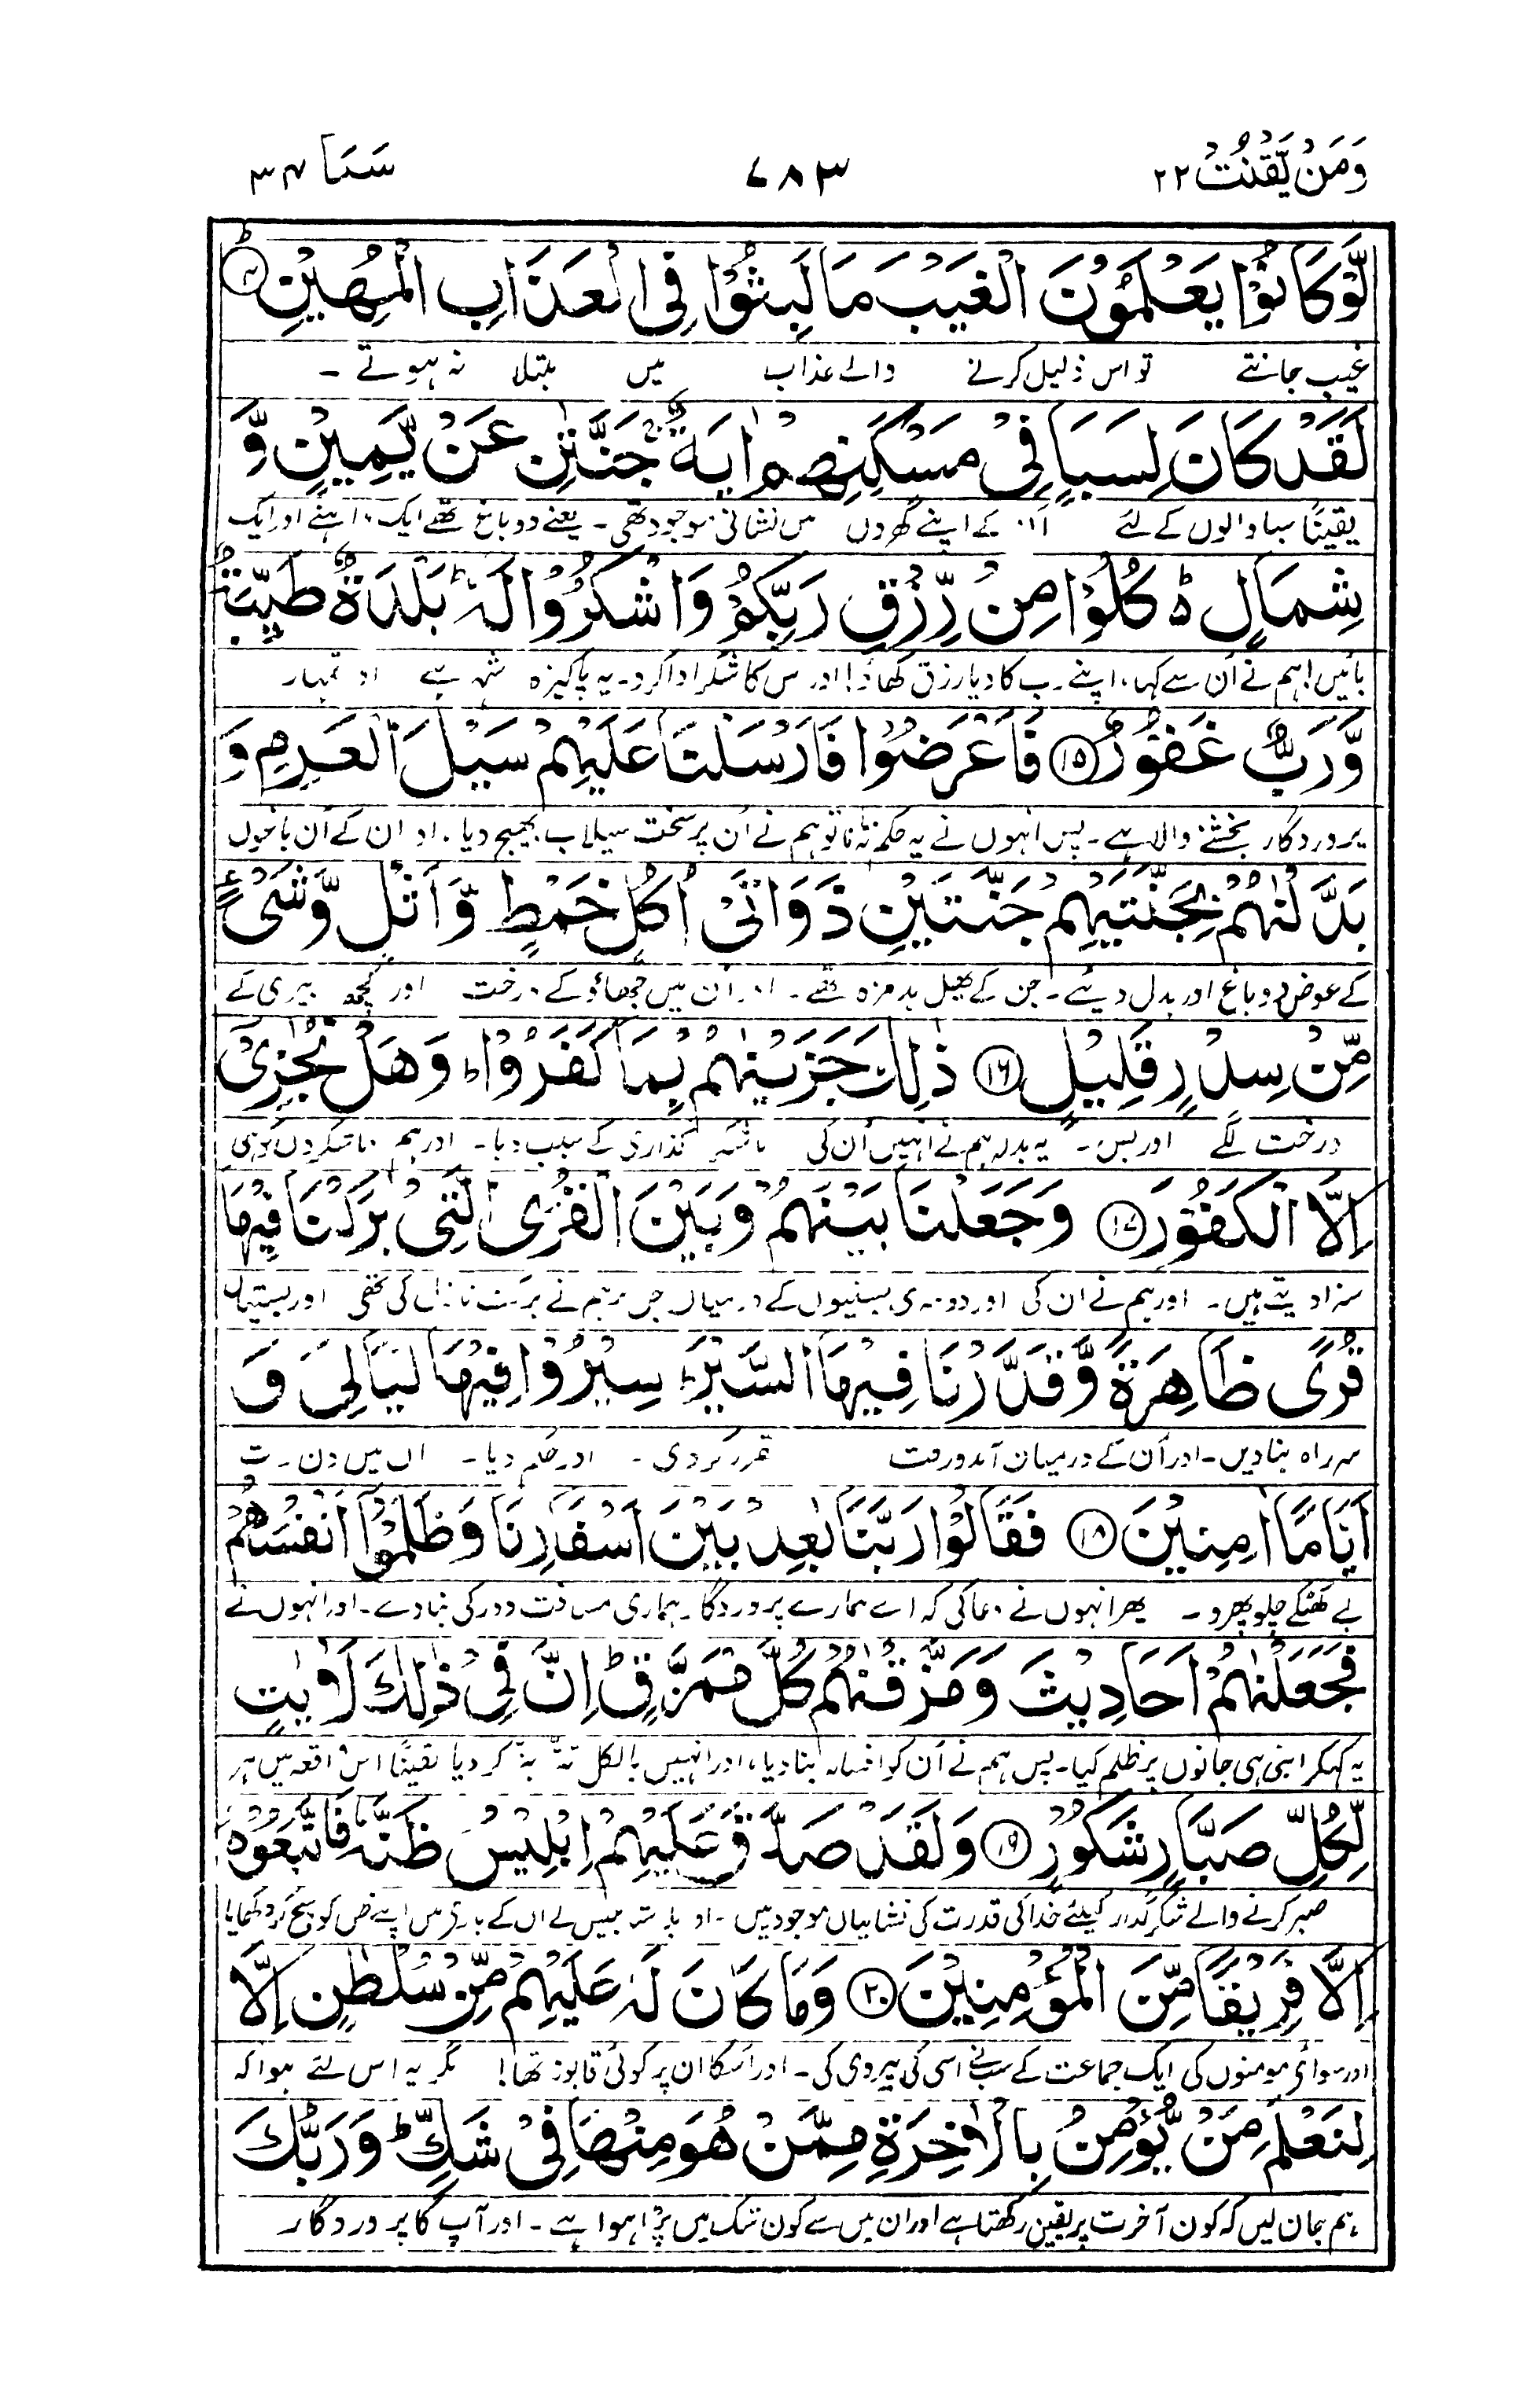 وَمَنْ يَّقْنُتْ ۲۲ ۷۸۳ سَبَا ۳۴
لَّوْ كَانُوْا يَعْلَمُوْنَ الْغَيْبَ مَا لَبِثُوْا فِي الْعَذَابِ الْمُهِيْنِ ۱۴ ط
غیب جانتے تو اس ذلیل کرنے والے عذاب میں مبتلا نہ ہوتے ۔
لَقَدْ كَانَ لِسَبَاٍ فِيْ مَسْكَنِهِمْ اٰيَةٌ ۚ جَنَّتٰنِ عَنْ يَّمِيْنٍ وَّ
یقیناً سبا والوں کے لئے کے اپنے گھروں میں نشانی موجود تھی ۔ یعنے دو باغ تھے ایک داہنے اور ایک
شِمَالٍ ؕ كُلُوْا مِنْ رِّزْقِ رَبِّكُمْ وَاشْكُرُوْا لَهٗ ؕ بَلْدَةٌ طَيِّبَةٌ
بائیں! ہم نے اُن سے کہا، اپنے رب کا دیا رزق کھاؤ! اور اس کا شکر ادا کرو ۔ یہ پاکیزہ شہر ہے اور تمہارا
وَّرَبٌّ غَفُوْرٌ ۱۵ فَاَعْرَضُوْا فَاَرْسَلْنَا عَلَيْهِمْ سَيْلَ الْعَرِمِ وَ
پروردگار بخشنے والا ہے ۔ پس انہوں نے یہ حکم نہ مانا تو ہم نے اُن پر سخت سیلاب بھیج دیا ، اور ان کے اُن باغوں
بَدَّلْنٰهُمْ بِجَنَّتَيْهِمْ جَنَّتَيْنِ ذَوَاتَيْ اُكُلٍ خَمْطٍ وَّاَثْلٍ وَّشَيْءٍ
کے عوض دو باغ اور بدل دیئے ۔ جن کے پھل بدمزہ تھے ۔ اور اُن میں جھاؤ کے درخت اور کچھ بیری کے
مِّنْ سِدْرٍ قَلِيْلٍ ۱۶ ذٰلِكَ جَزَيْنٰهُمْ بِمَا كَفَرُوْا ؕ وَهَلْ نُجٰزِيْٓ
درخت لگے اور بس ۔ یہ بدلہ ہم نے انہیں اُن کی ناشکر گذاری کے سبب دیا ۔ اور ہم ناشکروں کو ہی
اِلَّا الْكَفُوْرَ ۱۷ وَجَعَلْنَا بَيْنَهُمْ وَبَيْنَ الْقُرَى الَّتِيْ بٰرَكْنَا فِيْهَا
سزا دیتے ہیں ۔ اور ہم نے ان کی اور دوسری بستیوں کے درمیان جن پر ہم نے برکت نازل کی تھی اور بستیاں
قُرًى ظَاهِرَةً وَّقَدَّرْنَا فِيْهَا السَّيْرَ ؕ سِيْرُوْا فِيْهَا لَيَالِيَ وَ
سر راہ بنا دیں ۔ اور اُن کے درمیان آمدورفت مقرر کر دی ۔ اور حکم دیا ۔ ان میں دن رات
اَيَّامًا اٰمِنِيْنَ ۱۸ فَقَالُوْا رَبَّنَا بٰعِدْ بَيْنَ اَسْفَارِنَا وَظَلَمُوْٓا اَنْفُسَهُمْ
بے کھٹکے چلو پھرو ۔ پھر انہوں نے دعا کی کہ اے ہمارے پروردگار ہماری مسافت دور کی بنا دے ۔ اور انہوں نے
فَجَعَلْنٰهُمْ اَحَادِيْثَ وَمَزَّقْنٰهُمْ كُلَّ مُمَزَّقٍ ؕ اِنَّ فِيْ ذٰلِكَ لَاٰيٰتٍ
یہ کہکر اپنی ہی جانوں پر ظلم کیا ۔ پس ہم نے اُن کو افسانہ بنا دیا ، اور انہیں بالکل کر دیا یقیناً اس واقعہ میں ہر
لِّكُلِّ صَبَّارٍ شَكُوْرٍ ۱۹ وَلَقَدْ صَدَّقَ عَلَيْهِمْ اِبْلِيْسُ ظَنَّهٗ فَاتَّبَعُوْهُ
صبر کرنے والے شکر گذار کیلئے خدا کی قدرت کی نشانیاں موجود ہیں ۔ نے ان کے بارے میں اپنے کو سچ کر دکھایا
اِلَّا فَرِيْقًا مِّنَ الْمُؤْمِنِيْنَ ۲۰ وَمَا كَانَ لَهٗ عَلَيْهِمْ مِّنْ سُلْطٰنٍ اِلَّا
اور سوائے مومنوں کی ایک جماعت کے سب نے اسی کی پیروی کی ۔ اور اُسکا ان پر کوئی قابو نہ تھا! مگر یہ اس لئے ہوا کہ
لِنَعْلَمَ مَنْ يُّؤْمِنُ بِالْاٰخِرَةِ مِمَّنْ هُوَ مِنْهَا فِيْ شَكٍّ ؕ وَرَبُّكَ
ہم جان لیں کہ کون آخرت پر یقین رکھتا ہے اور ان میں سے کون شک میں پڑا ہوا ہے ۔ اور آپ کا پروردگار